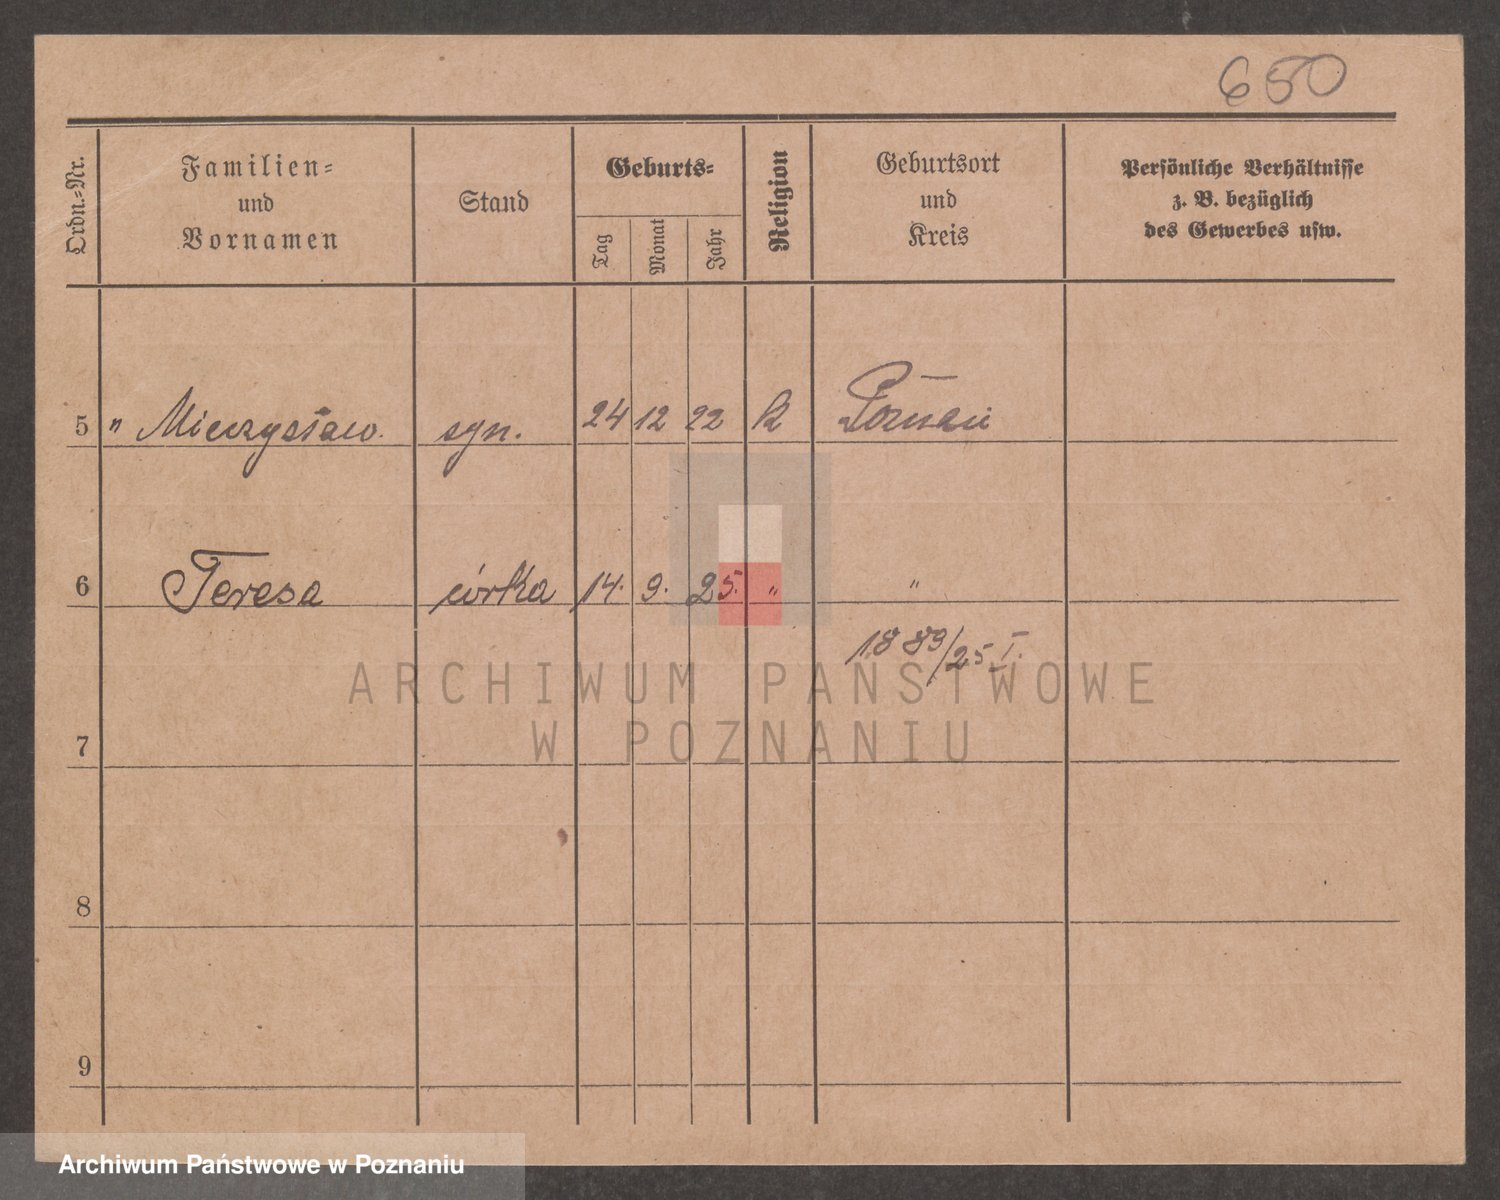 650
Ordn.-Nr.
Familien-
und
Vornamen
Stand
Geburts-
Tag
Monat
Jahr
Religion
Geburtsort
und
Kreis
Persönliche Verhältnisse
z. B. bezüglich
des Gewerbes usw.
5 " Mieczysław. syn. 24 12 22 k Poznań
6 Teresa córka 14. 9. 25. " "
1889/25 I.
7
8
9
ARCHIWUM PAŃSTWOWE
W POZNANIU
Archiwum Państwowe w Poznaniu